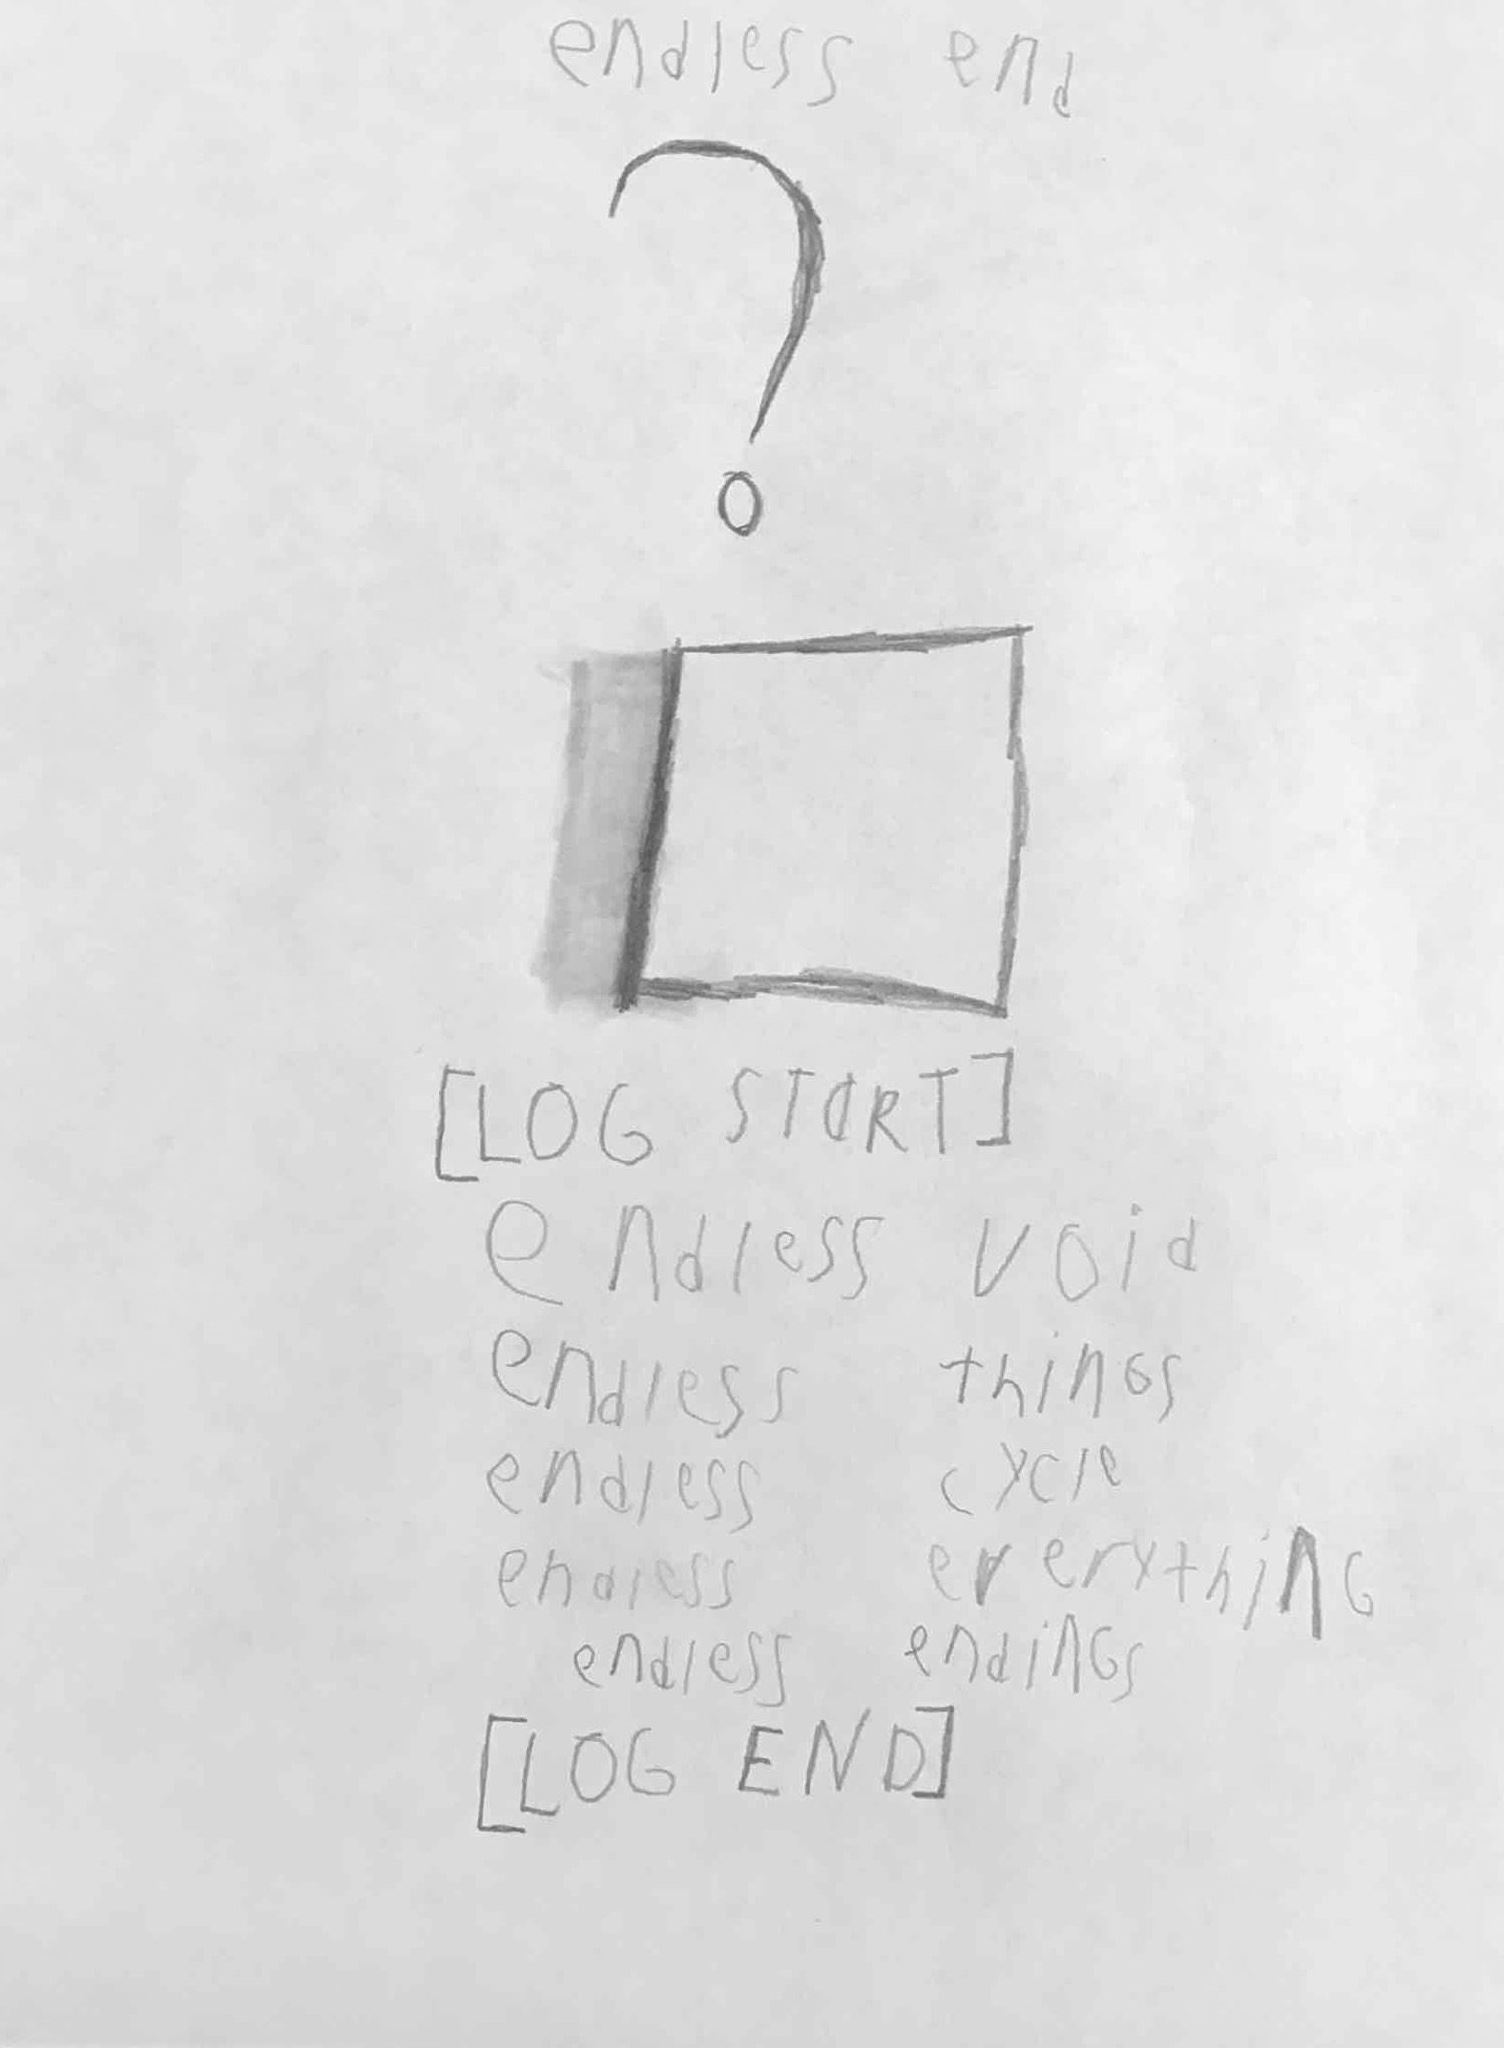 endless end
?
[LOG START]
endless void
endless things
endless cycle
endless everything
endless endings
[LOG END]